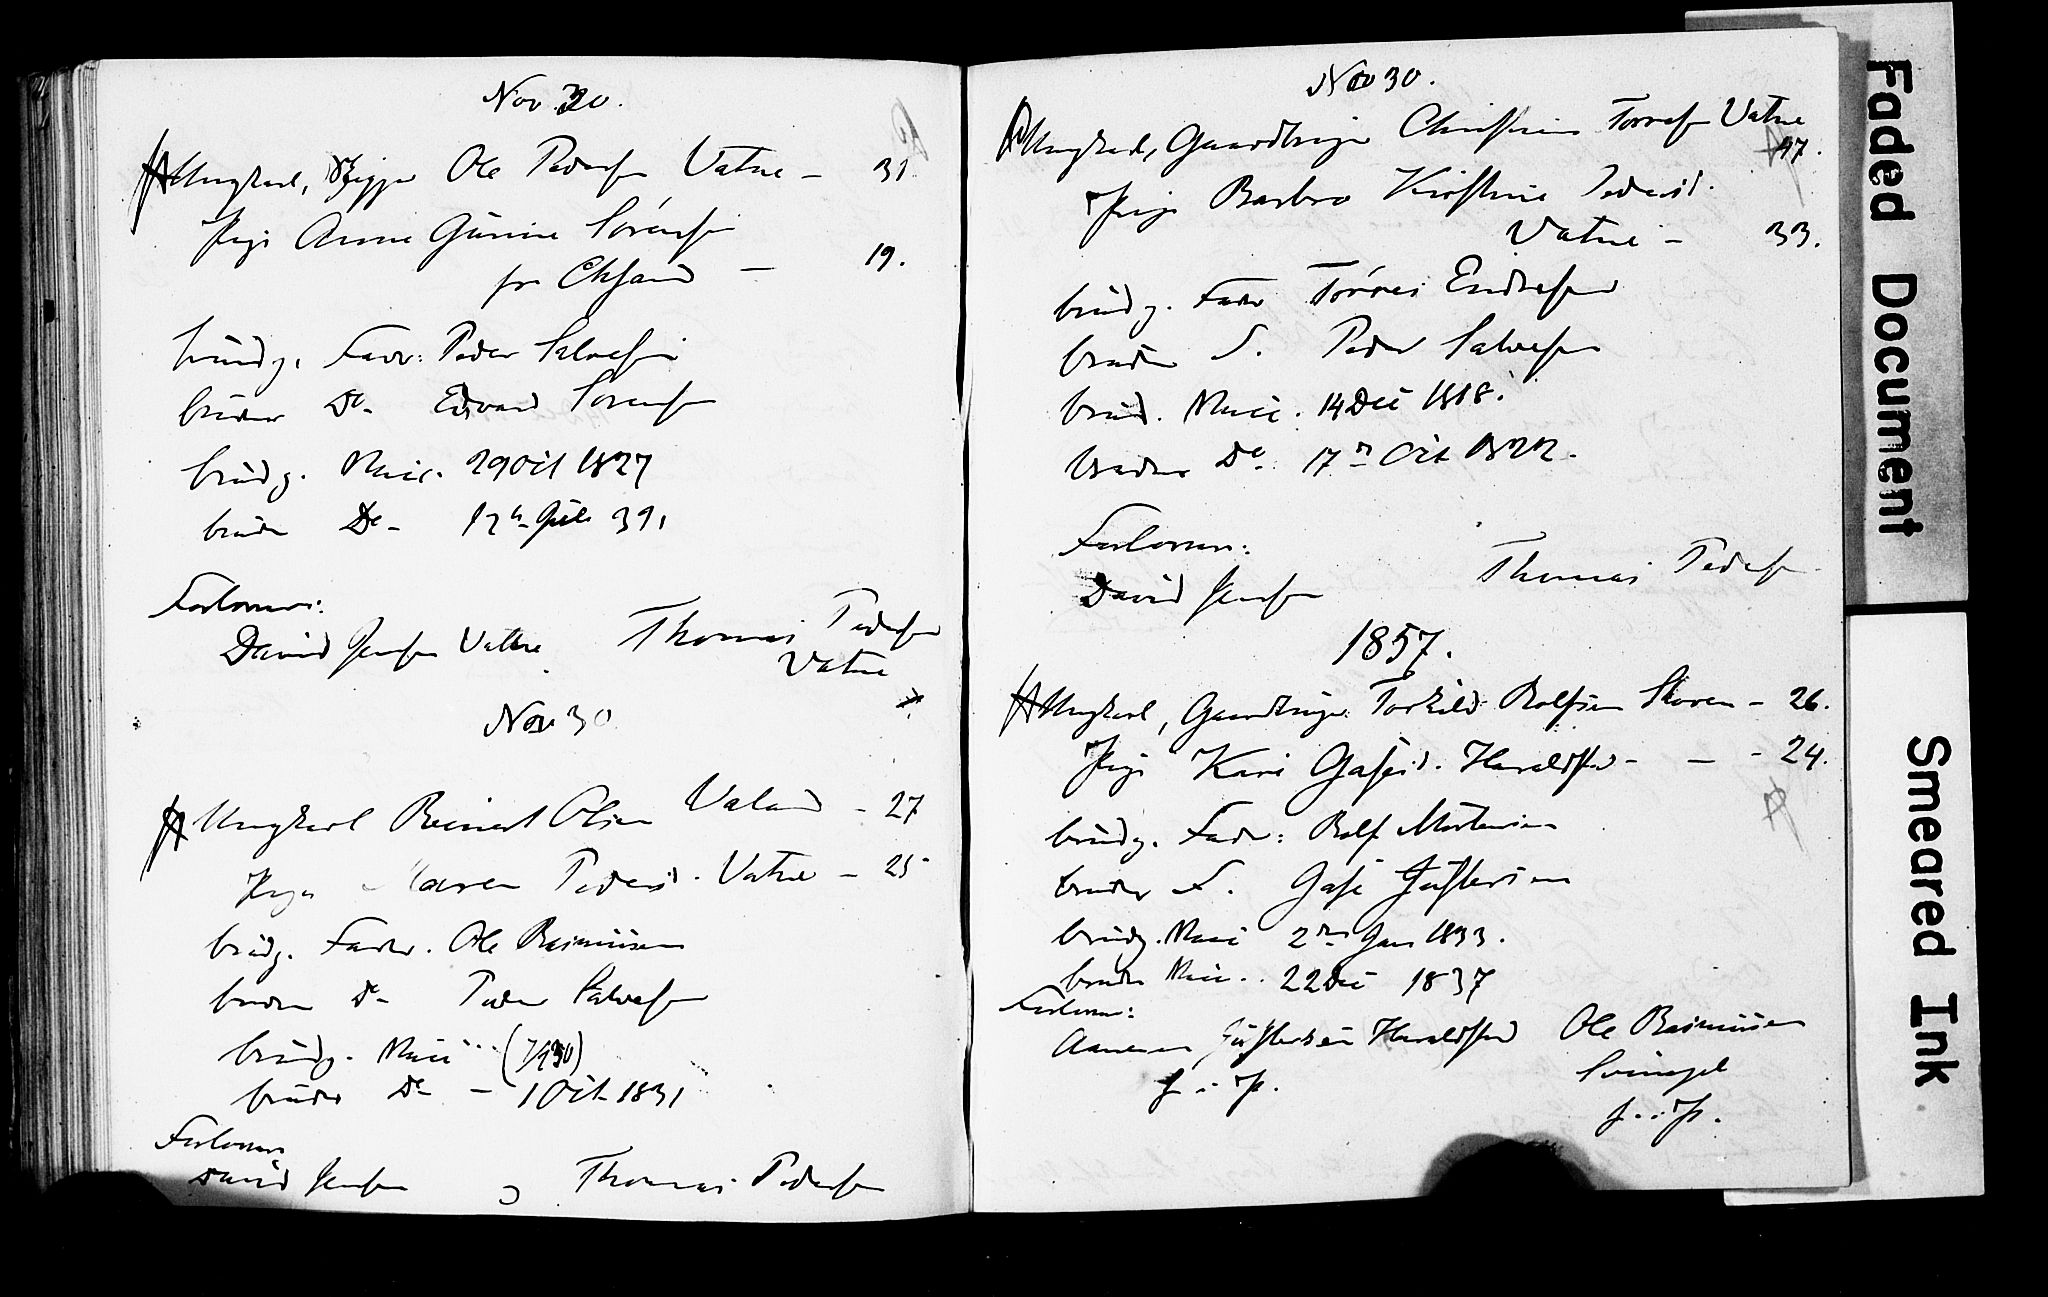 Nov 30.
Ungkarl, Ole Pedersen Vatne - 31.
Pige Anne Gurine Sörensen
fra Chsand - 19.
brudg. Fader: Peder Salvesen
bruden Do - Edvard Sörensen
brudg. Vacc. 29 Oct 1827
bruden Do - 39,
Forlovere:
David Jensen Vatne Thomas Pedersen
Vatne
Nov 30
Ungkarl Reinert Olsen Valand - 27
Pige Maren Pedersd. Vatne - 25
brudg. Fader. Ole Rasmussen
bruden Do - Peder Salvesen
brudg. Vacc
bruden Do - 1 Oct 1831
Forlovere
David Jensen Thomas Pedersen
Nov 30.
Ungkarl, Gaardbruger Christen Torresen Vatne
47.
Pige Barbro Kirstine Pedersd.
Vatne - 33.
brudg. Fader Torres Endresen
bruden F. Peder Salvesen
brud. Vacc. 14 Dec 1818.
bruden Do. 17 Oct 1822.
Forlovere:
David Jensen Thomas Pedersen
1857.
Ungkarl, Gaardbruger Torkild Rolfsen Skoven - 26.
Pige Kari Gasesd. Haraldstad - - - 24.
brudg. Fader: Rolf Mortensen
bruden F. Gase
brudg. Vacc 2 Jan 1833.
bruden Vacc. 22 Dec 1837
Forlovere:
Haraldstad Ole Rasmussen
Faded Document
Smeared Ink